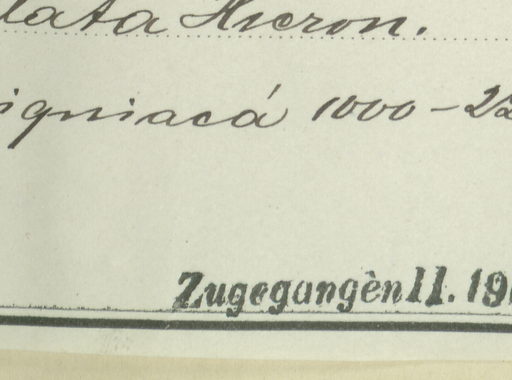 lata Hieron.
igniacá 1000-22
Zugegangèn 11. 19